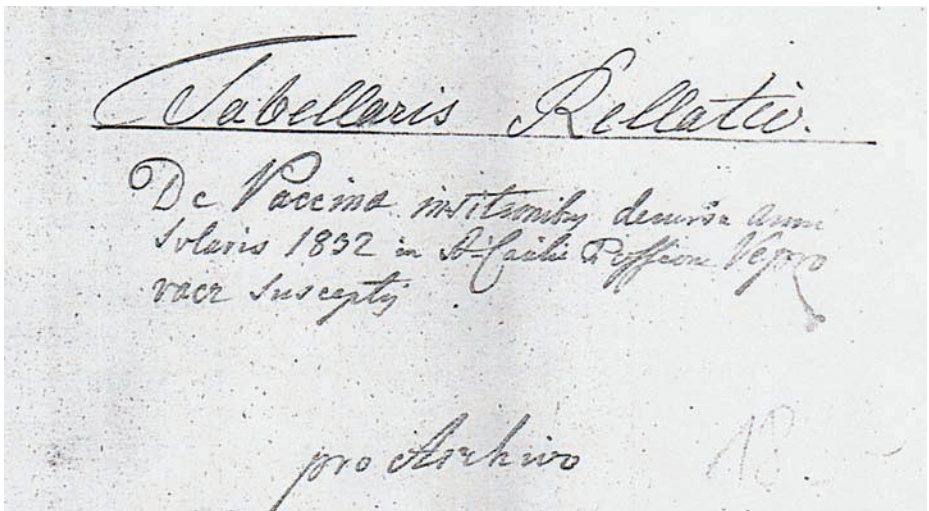 Tabellaris Rellatio.
De Vaccina institutionibus decursu anni
Solaris 1832 in Possion Vepro
vacz susceptis
pro Archivo
18